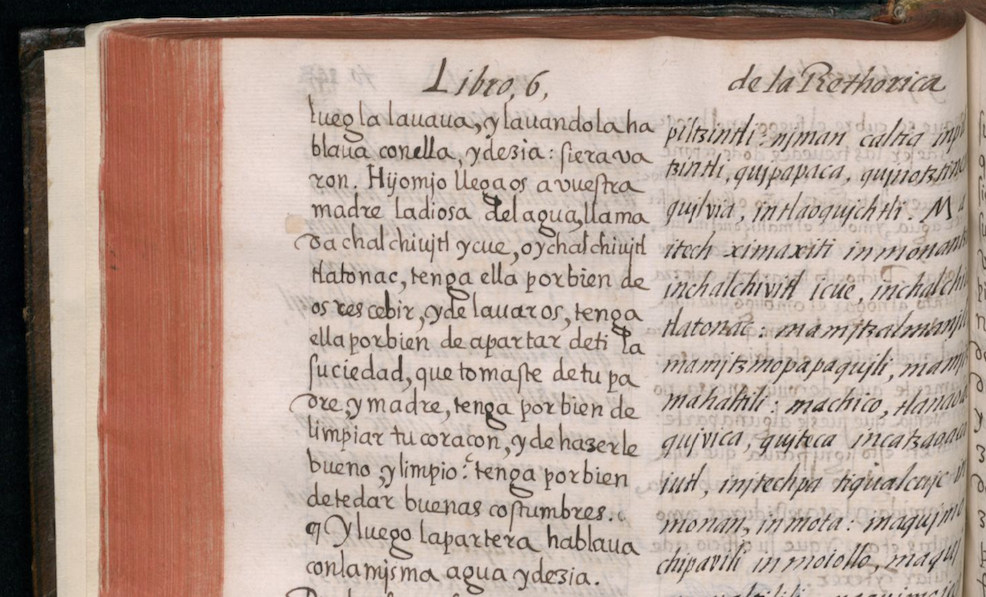 Libro, 6,
de la Rethorica
luego la lauaua, y lauandola ha
blaua con ella, y dezia: si era va
ron. Hijo mjo llegaos a vuestra
madre la diosa del agua, llama
da chalchiujtl ycue, o ychalchiujtl
tlatonac, tenga ella por bien de
os rescebir, y de lauaros, tenga
ella por bien de apartar de ti la
suciedad, que tomaste de tu pa
dre, y madre, tenga por bien de
limpiar tu coraçon, y de hazerle
bueno, y limpio: tenga por bien
de te dar buenas costumbres.
q Y luego la partera hablaua
con la mjsma agua y dezia.
piltzintli: njman caltia
tzintli, qujpapaca,
qujlvia, intlaoqujchtli.
itech ximaxiti in monan
inchalchivitl icue, inchalchi
tlatonac: ma mjtzalmanjli
ma mjtzmopapaqujli,
mahaltili: ma chico, tlanaoa
qujvica, qujteca in catzaoaca
iutl, in jtechpa ticqualcujc
monan, in mota: ma qujme
chipavili in moiollo, maquj